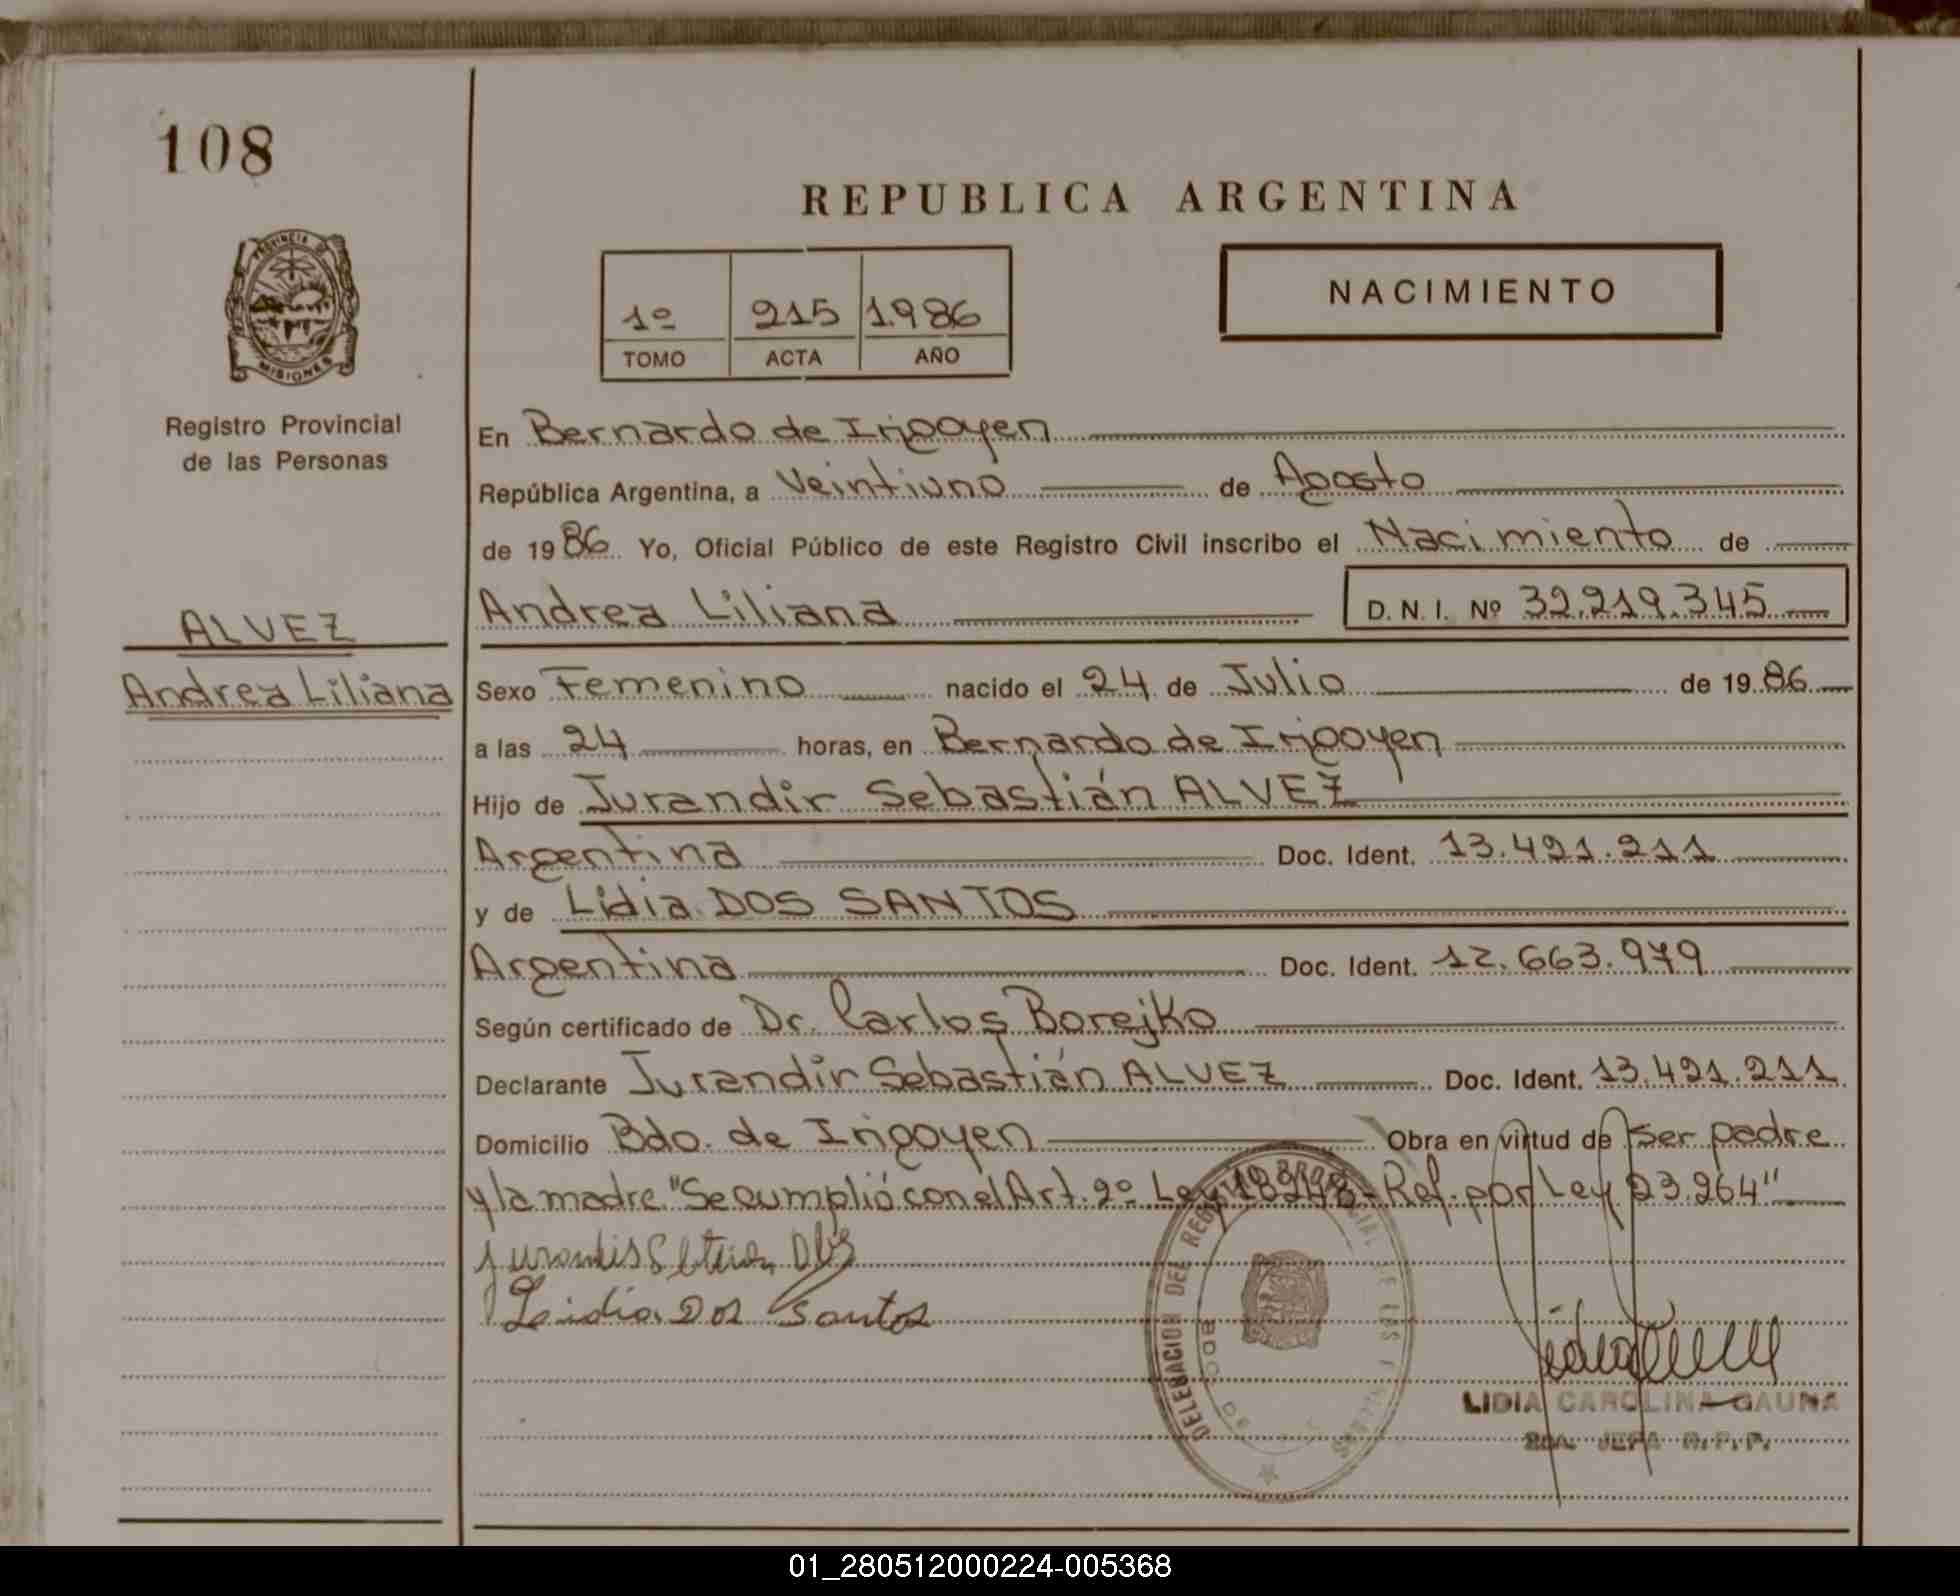 108
REPUBLICA ARGENTINA
PROVINCIA DE
MISIONES
Registro Provincial
de las Personas
1º 215 1.986
TOMO ACTA AÑO
NACIMIENTO
En Bernardo de Irigoyen
República Argentina, a Veintiuno de Agosto
de 1986 Yo, Oficial Público de este Registro Civil inscribo el Nacimiento de
Andrea Liliana D. N. I. Nº 32.219.345
ALVEZ
Andrea Liliana
Sexo Femenino nacido el 24 de Julio de 1986
a las 24 horas, en Bernardo de Irigoyen
Hijo de Jurandir Sebastián ALVEZ
Argentina Doc. Ident. 13.421.211
y de Lidia DOS SANTOS
Argentina Doc. Ident. 12.663.979
Según certificado de Dr. Carlos Borejko
Declarante Jurandir Sebastián ALVEZ Doc. Ident. 13.421.211
Domicilio Bdo. de Irigoyen Obra en virtud de ser padre
y la madre "Se cumplió con el Art. 2º Ley 18.248 - Ref. por Ley 23.264"
Leidia Dos Santos
DELEGACION DEL REGISTRO PROVINCIAL DE LAS PERSONAS
BDO DE
LIDIA CAROLINA GAUNA
JEFA R.P.P.
01_280512000224-005368